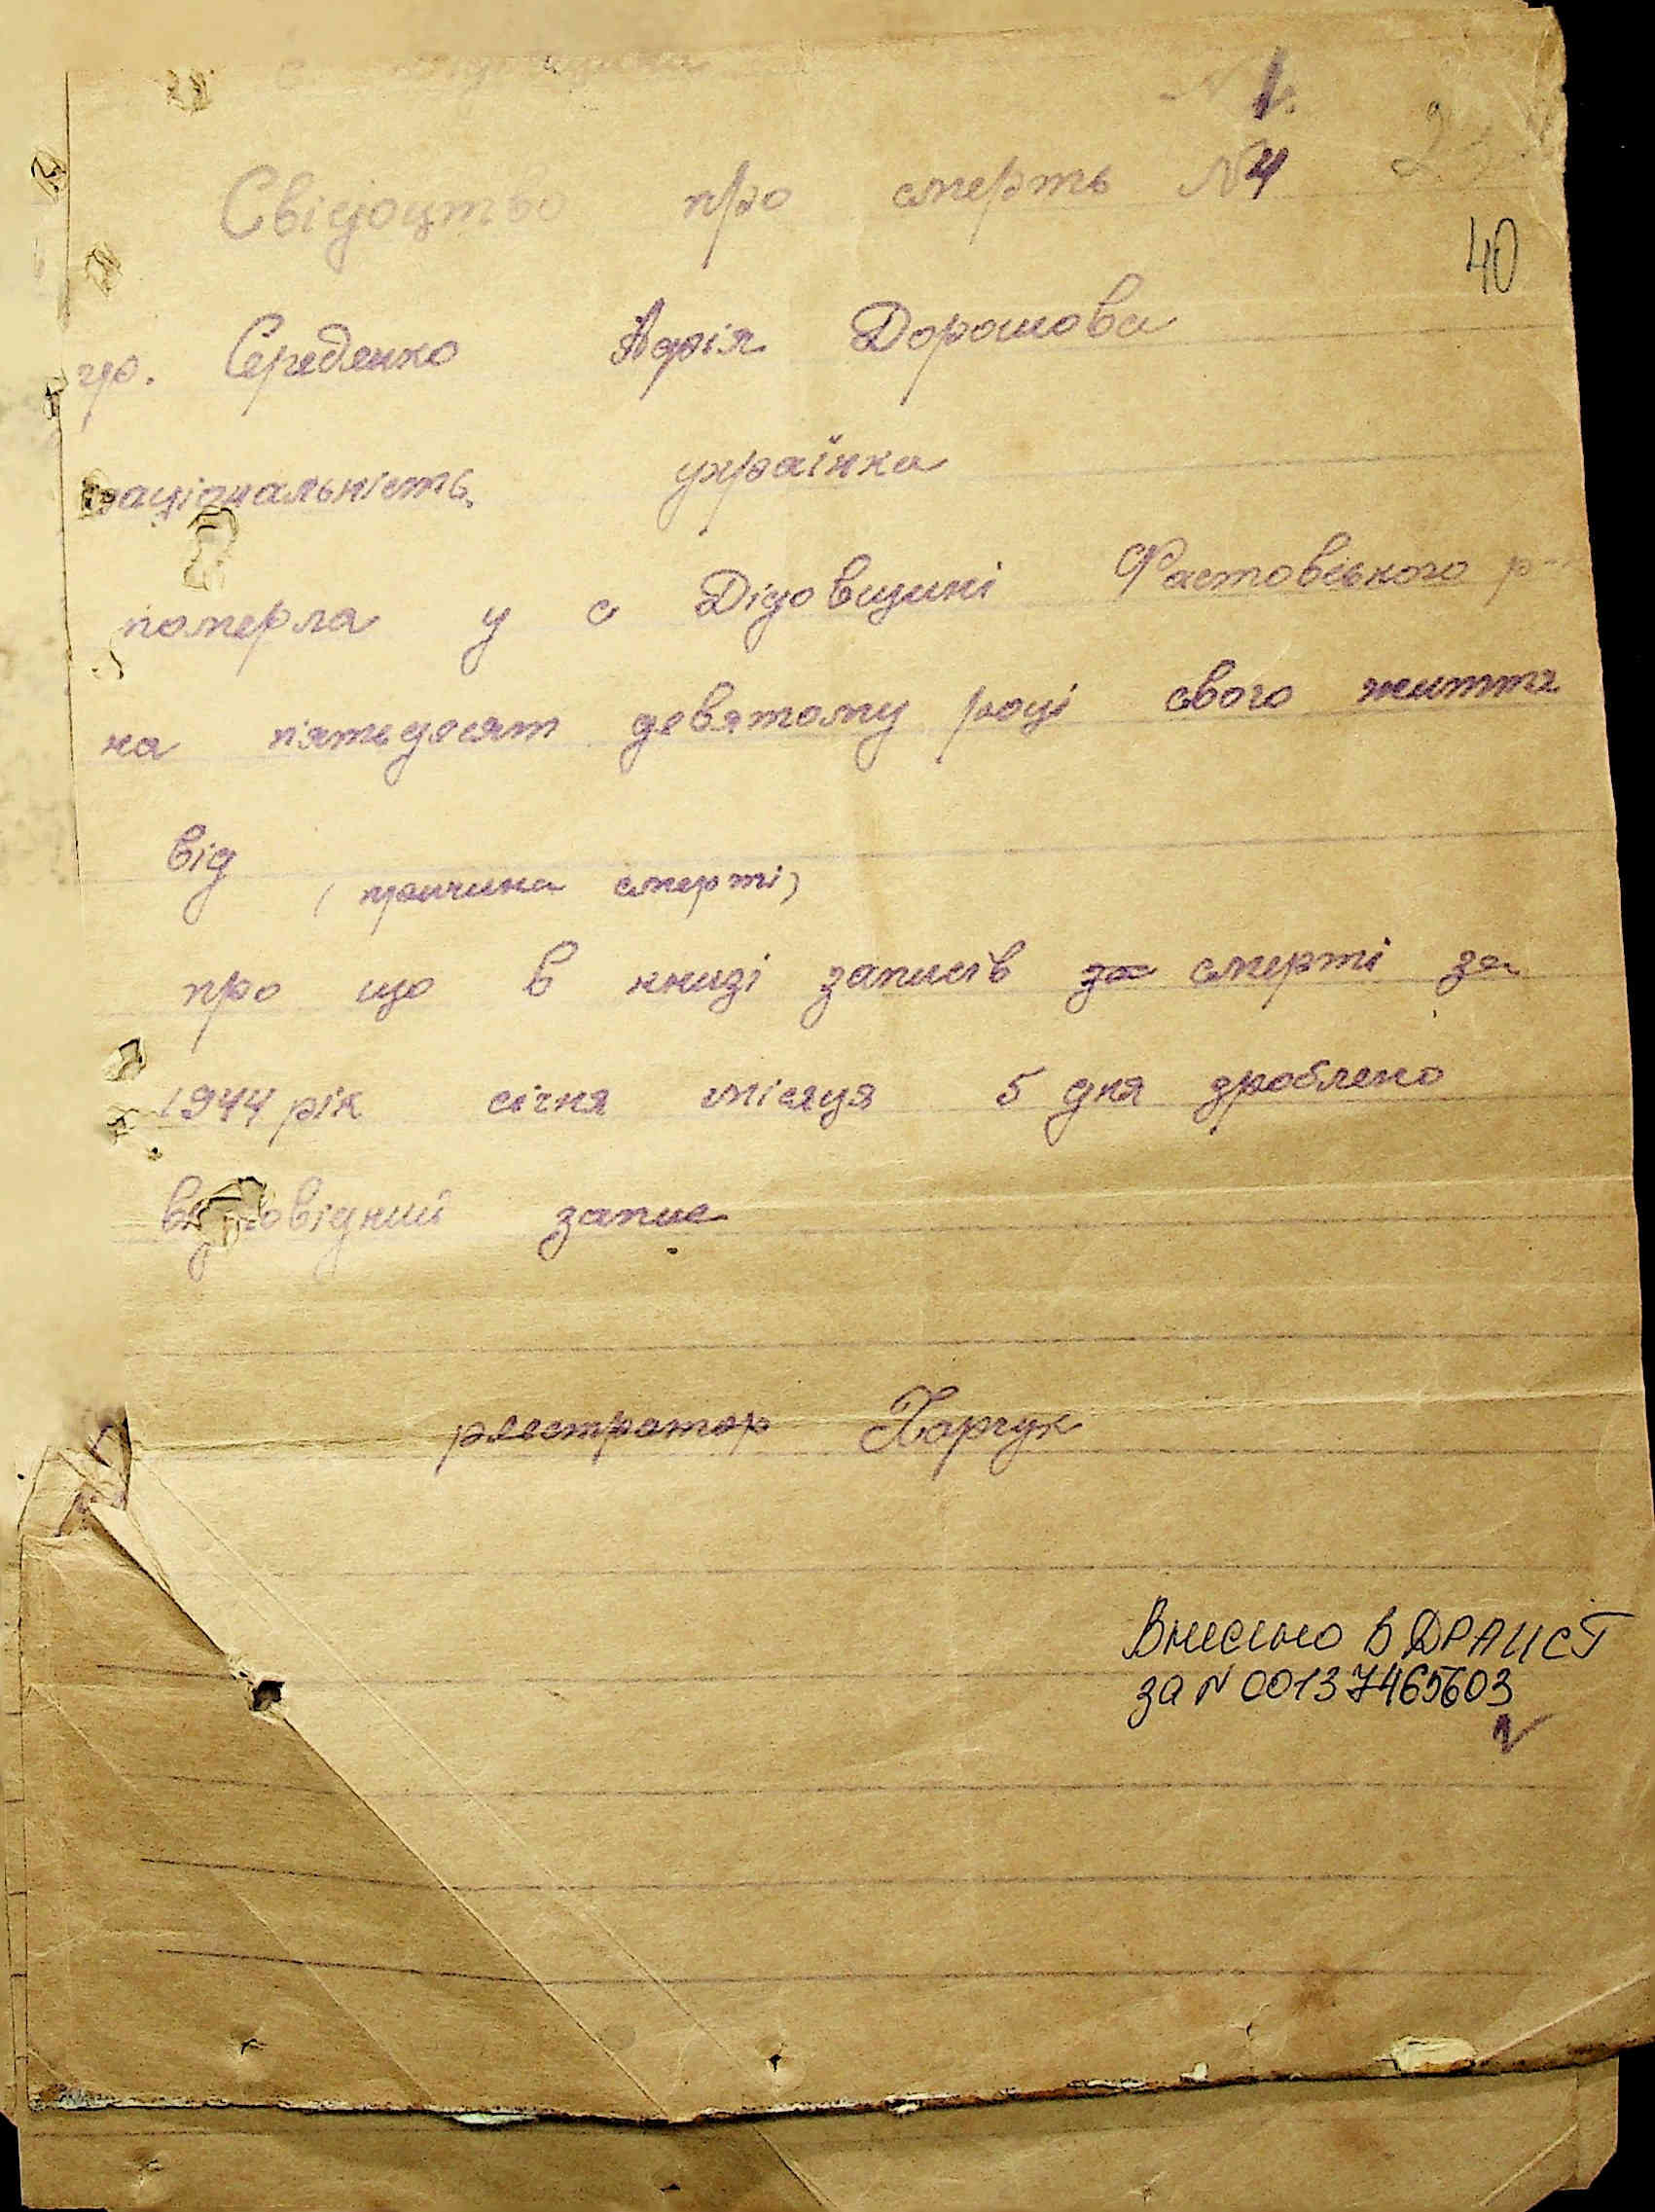 N 1.
Свідоцтво про смерть N4
40
гр. Середенко Агрія Дорошова
національність українка
померла у с Дідовщині Фастовського р-
на пятьдесят девятому році свого життя
від
(причина смерті)
про що в книзі записів за смерті за
1944 рік січня місяця 5 дня зроблено
відповідний запис
реєстратор Харчук
Внесено в ДРАЦСГ
за N 00137465603